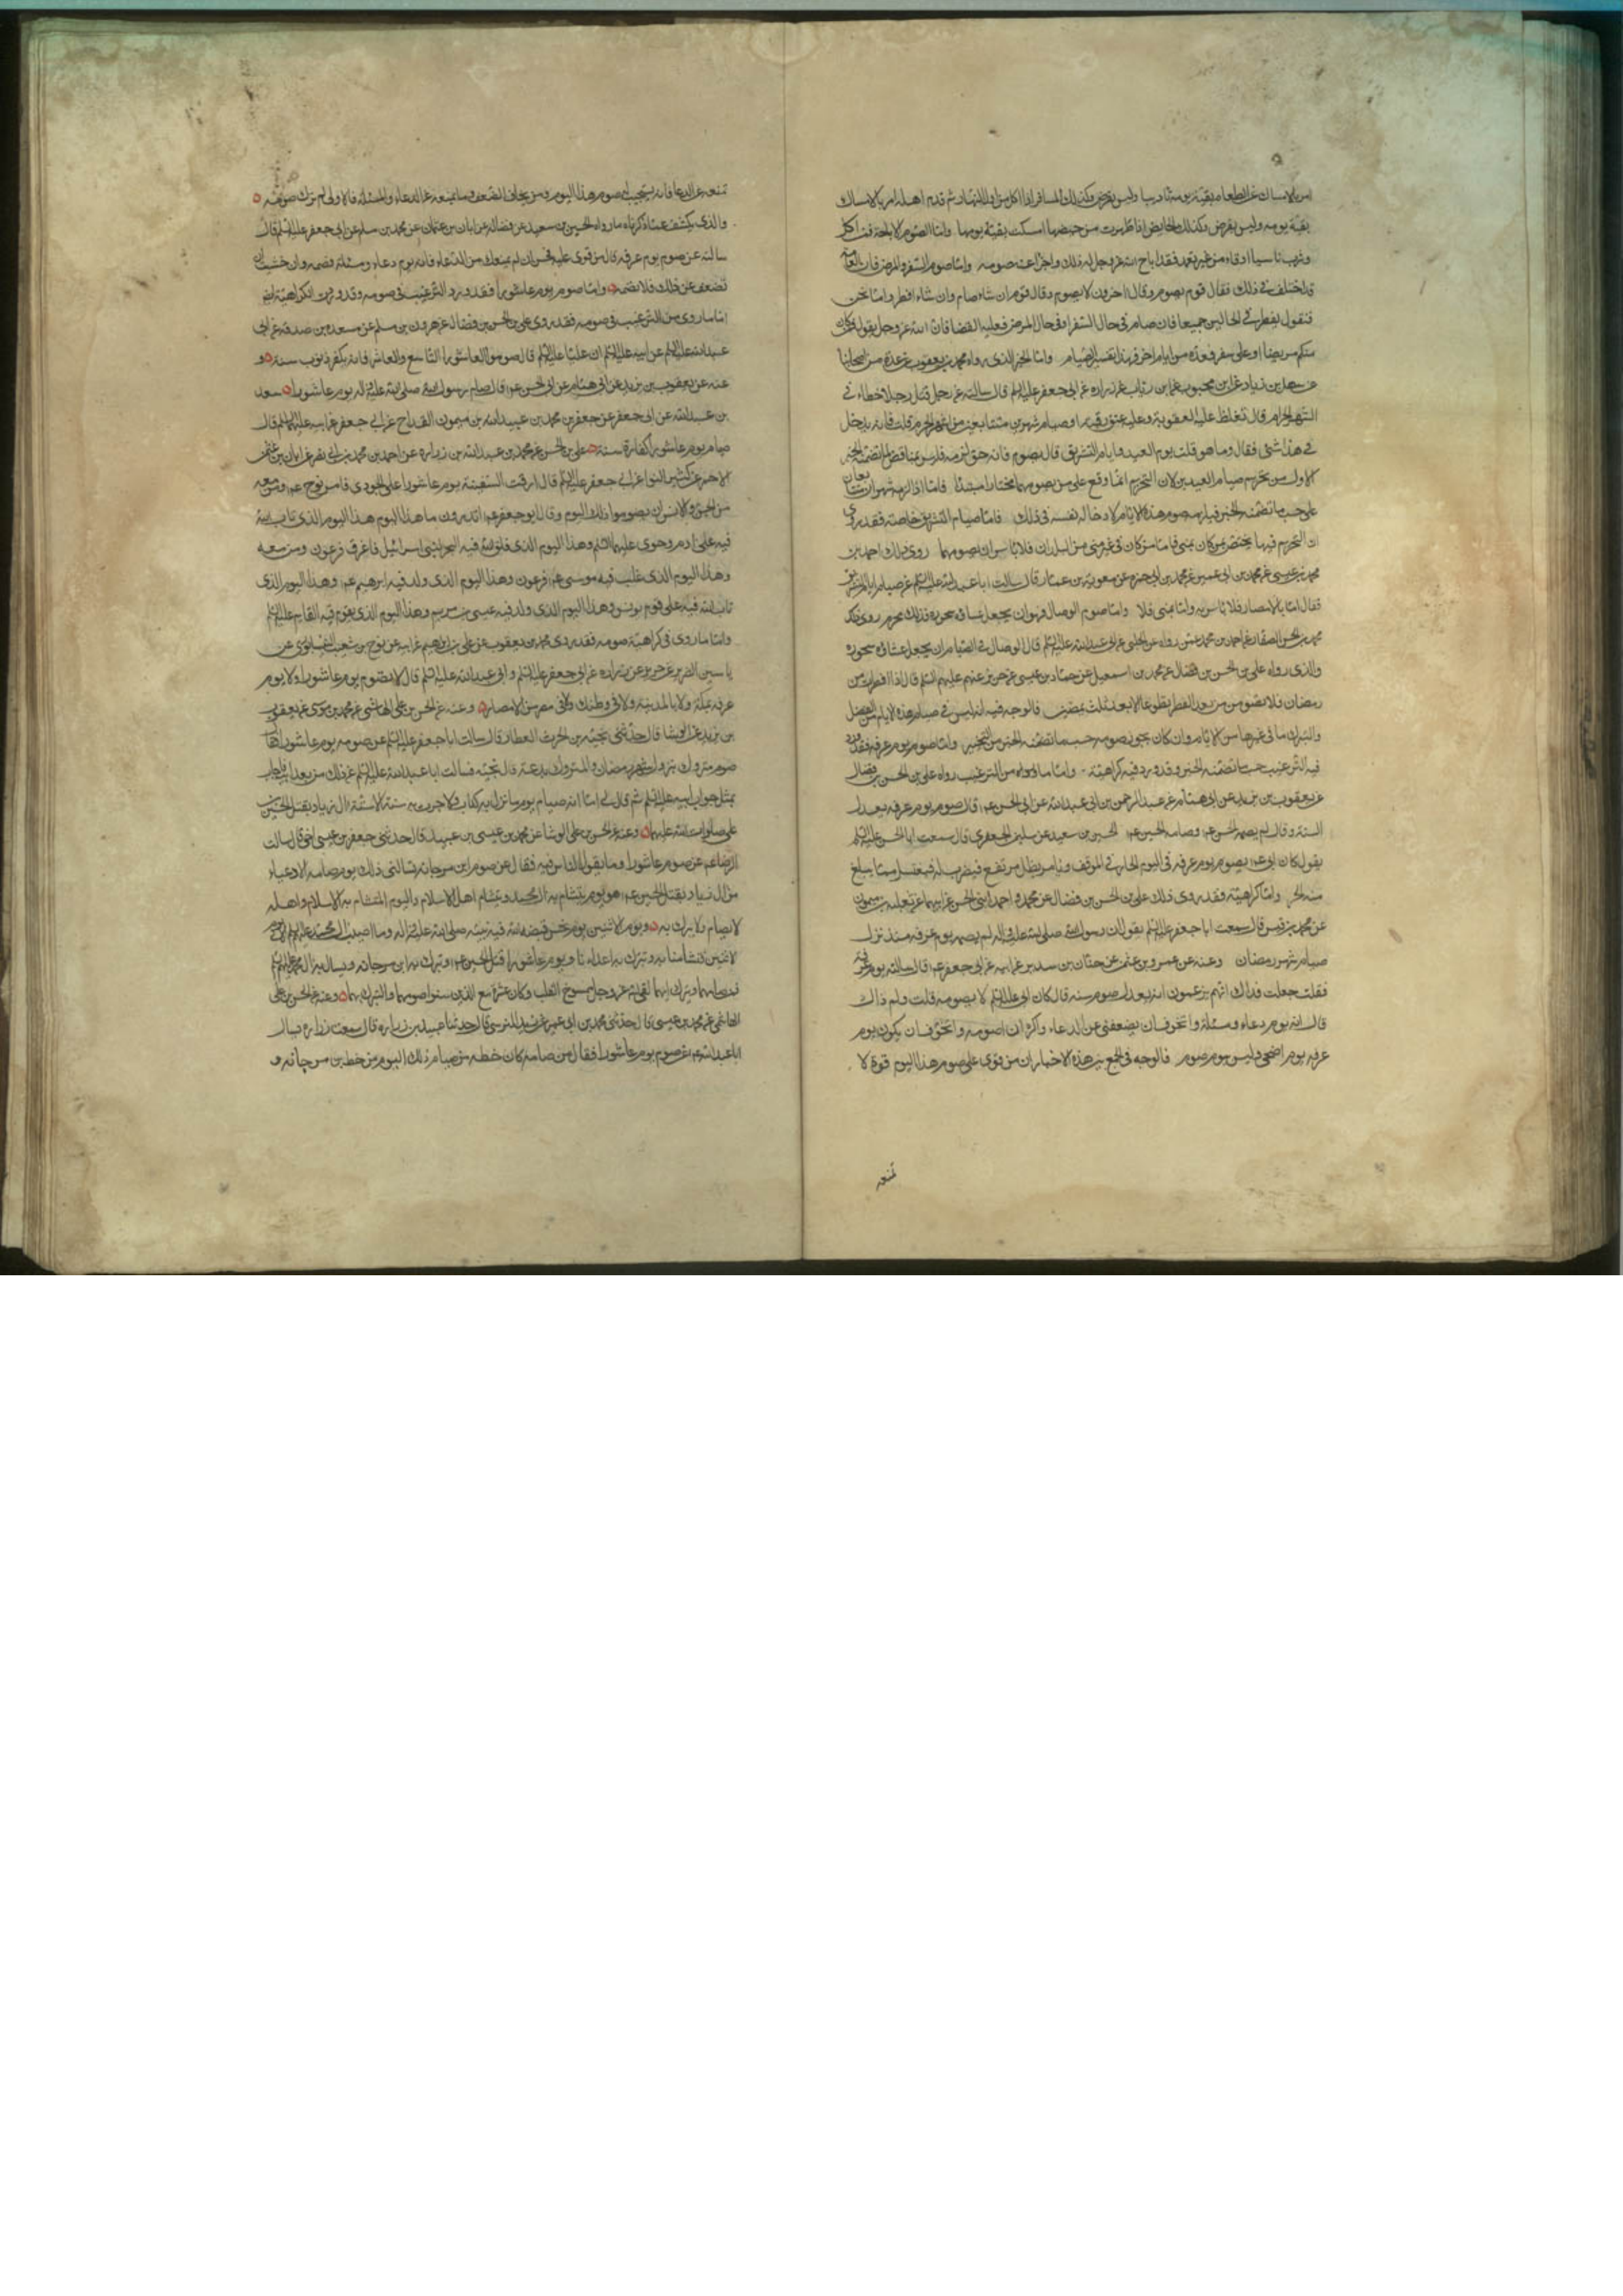 امر بالامساك عن الطعام بقية يومه تاديبا وليس بفرض وكذلك المسافر اذا اكل من اول النهار ثم قدم اهله امر بالامساك
بقية يومه وليس بفرض وكذلك الحايض اذا طهرت من حيضها امسكت بقية يومها واما الصوم الاباحة فمن اكل
وشرب ناسيا او قاء من غير تعمد فقد اباح الله عز وجل له ذلك واجزا عنه صومه واما صوم السفر والمرض فان العامة
قد اختلفت في ذلك فقال قوم يصوم وقال اخرون لا يصوم وقال قوم ان شاء صام وان شاء افطر واما نحن
فنقول يفطر في الحالين جميعا فان صام في حال السفر او في حال المرض فعليه القضا فان الله عز وجل يقول فمن كان
منكم مريضا او على سفر فعدة من ايام اخر فهذا تفسير الصيام واما الخبر الذي رواه محمد بن يعقوب عن عدة من اصحابنا
عن سهل بن زياد عن ابن محبوب عن ابن رئاب عن زراره عن ابي جعفر عليه السلم قال سالته عن رجل قتل رجلا خطاء في
الشهر الحرام قال تغلظ عليه العقوبة وعليه عتق رقبة او صيام شهرين متتابعين من اشهر الحرم قلت فانه يدخل
في هذا شئ فقال وما هو قلت يوم العيد وايام التشريق قال يصوم فانه حق لزمه فليس بمناقض لما تضمنه الخبر
الاول من تحريم صيام العيدين لان التحريم انما وقع على من يصومهما مختارا مبتدئا فاما اذا لزمه شهران متتابعان
على حسب ما تضمنه الخبر فيلزمه صوم هذه الايام لادخاله نفسه في ذلك فاما صيام التشريق خاصة فقد روي
ان التحريم فيها يختص بمن كان بمنى فاما من كان في غير منى من البلدان فلا باس ان يصومها روى ذلك احمد بن
محمد بن عيسى عن محمد بن ابي عمير عن محمد بن ابي حمزه عن معوية بن عمار قال سالت ابا عبد الله عليه السلم عن صيام ايام التشريق
فقال اما بالامصار فلا باس به واما بمنى فلا واما صوم الوصال فهو ان يجعل عشاؤه سحوره فذلك محرم روى ذلك
محمد بن الحسن الصفار عن احمد بن محمد عن رواه عن الحلبي عن ابي عبد الله عليه السلم قال الوصال في الصيام ان يجعل عشاؤه سحوره
والذي رواه علي بن الحسن بن فضال عن محمد بن اسمعيل عن حماد بن عيسى عن حريز عنهم عليهم السلم قال اذا افطرت من
رمضان فلا تصومن من بعد الفطر تطوعا الا بعد ثلث يمضين فالوجه فيه انه ليس في صيام هذه الايام من الفضل
والتبرك ما في غيرها من الايام وان كان يجوز صومه حسب ما تضمنه الخبر من التخيير واما صوم يوم عرفه فقد ورد
فيه الترغيب حسب ما تضمنه الخبر وقد ورد فيه كراهية واما ما رواه من الترغيب رواه علي بن الحسن بن فضال
عن يعقوب بن يزيد عن ابي همام عن عبد الرحمن بن ابي عبد الله عن ابي الحسن عم قال صوم يوم عرفه يعدل
السنة وقال لم يصمه الحسن عم وصامه الحسين عم الحسين بن سعيد عن سليمن الجعفري قال سمعت ابا الحسن عليه السلم
يقول كان ابي عم يصوم يوم عرفه في اليوم الحار في الموقف ويامر بظل مرتفع فيضرب له فيغتسل مما يبلغ
منه الحر واما كراهية فقد روى ذلك علي بن الحسن بن فضال عن محمد واحمد ابني الحسن عن ابيهما عن ثعلبه بن ميمون
عن محمد بن قيس قال سمعت ابا جعفر عليه السلم يقول ان رسول الله صلى الله عليه واله لم يصم يوم عرفه منذ نزل
صيام شهر رمضان وعنه عن عمرو بن عثمن عن حنان بن سدير عن ابيه عن ابي جعفر عم قال سالته عن يوم عرفه
فقلت جعلت فداك انهم يزعمون انه يعدل صوم سنه قال كان ابي عليه السلم لا يصومه قلت ولم ذاك
قال انه يوم دعاء ومسئلة واتخوف ان يضعفني عن الدعاء واكره ان اصومه واتخوف ان يكون يوم
عرفه يوم اضحى وليس بيوم صوم فالوجه في الجمع بين هذه الاخبار ان من قوى على صوم هذا اليوم قوة لا
تمنعه
تمنعه عن الدعا فانه يستحب له صوم هذا اليوم ومن يخاف الضعف وما يمنعه عن الدعاء والمسئلة فالاولى له ترك صومه
والذي يكشف عما ذكرناه ما رواه الحسين بن سعيد عن فضاله عن ابان بن عثمان عن محمد بن مسلم عن ابي جعفر عليه السلم قال
سالته عن صوم يوم عرفه قال من قوى عليه فحسن ان لم يمنعك من الدعاء فانه يوم دعاء ومسئلة فصمه وان خشيت ان
تضعف عن ذلك فلا تصمه واما صوم يوم عاشورا فقد ورد الترغيب في صومه وقد وردت الكراهية ايضا
اما ما روى من الترغيب في صومه فقد روى علي بن الحسن بن فضال عن هرون بن مسلم عن مسعده بن صدقه عن ابي
عبد الله عليه السلم عن ابيه عليه السلم ان عليا عليه السلم قال صوموا العاشورا التاسع والعاشر فانه يكفر ذنوب سنة و
عنه عن يعقوب بن يزيد عن ابي همام عن ابي الحسن عم قال صام رسول الله صلى الله عليه واله يوم عاشورا سعد
بن عبد الله عن ابي جعفر عن جعفر بن محمد بن عبيد الله بن ميمون القداح عن ابي جعفر عن ابيه عليهما السلم قال
صيام يوم عاشورا كفارة سنة علي بن الحسن عن محمد بن عبد الله بن زراره عن احمد بن محمد بن ابي نصر عن ابان بن عثمن
الاحمر عن كثير النوا عن ابي جعفر عليه السلم قال لزقت السفينة يوم عاشورا على الجودي فامر نوح عم ومن معه
من الجن والانس ان يصوموا ذلك اليوم وقال ابو جعفر عم اتدرون ما هذا اليوم هذا اليوم الذي تاب الله
فيه على ادم وحوى عليهما السلم وهذا اليوم الذي فلق الله فيه البحر لبني اسرائيل فاغرق فرعون ومن معه
وهذا اليوم الذي غلب فيه موسى عم فرعون وهذا اليوم الذي ولد فيه ابرهيم عم وهذا اليوم الذى
تاب الله فيه على قوم يونس وهذا اليوم الذي ولد فيه عيسى بن مريم وهذا اليوم الذي يقوم فيه القايم عليه السلم
واما ما روى في كراهية صومه فقد روى محمد بن يعقوب عن علي بن ابرهيم عن ابيه عن نوح بن شعيب النيسابوري عن
ياسين الضرير عن حريز عن زراره عن ابي جعفر عليه السلم وابي عبد الله عليه السلم قال لا تصوم يوم عاشورا ولا يوم
عرفه بمكة ولا بالمدينة ولا في وطنك ولا في مصر من الامصار وعنه عن الحسن بن علي الهاشمي عن محمد بن موسى عن يعقوب
بن يزيد عن الوشا قال حدثني نجبة بن الحرث العطار قال سالت ابا جعفر عليه السلم عن صوم يوم عاشورا فقال
صوم متروك بنزول شهر رمضان والمتروك بدعة قال نجبه فسالت ابا عبد الله عليه السلم عن ذلك من بعد ابيه فاجاب
بمثل جواب ابيه عليه السلم ثم قال لي اما انه صيام يوم ما نزل به كتاب ولا جرت به سنة الا سنة ال زياد بقتل الحسين بن
علي صلوات الله عليهما وعنه عن الحسن بن علي الوشا عن محمد بن عيسى بن عبيد قال حدثني جعفر بن عيسى اخي قال سالت
الرضا عم عن صوم عاشورا وما يقول الناس فيه فقال عن صوم ابن مرجانة تسالني ذلك يوم صامه الادعياء
من ال زياد بقتل الحسين عم وهو يوم يتشام به ال محمد ويتشام اهل الاسلام واليوم المتشام به الاسلام واهله
لا يصام ولا يترك به ويوم الاثنين يوم نحس قبض الله فيه نبيه صلى الله عليه واله وما اصيب ال محمد عليهم السلم الا في يوم
الاثنين فتشامنا به وتبرك به اعداءنا ويوم عاشورا قتل الحسين عم وتبرك به ابن مرجانه ويتشام به ال محمد عليهم السلم
فمن صامهما وتبرك بهما لقي الله عز وجل ممسوخ القلب وكان محشره مع الذين سنوا صومهما والتبرك بهما وعنه عن الحسن بن علي
الهاشمي عن محمد بن عيسى قال حدثني محمد بن ابي عمير عن زيد النرسي قال حدثنا عبيد بن زراره قال سمعت زراره يسال
ابا عبد الله عم عن صوم يوم عاشورا فقال من صامه كان حظه من صيام ذلك اليوم من حظ ابن مرجانه و